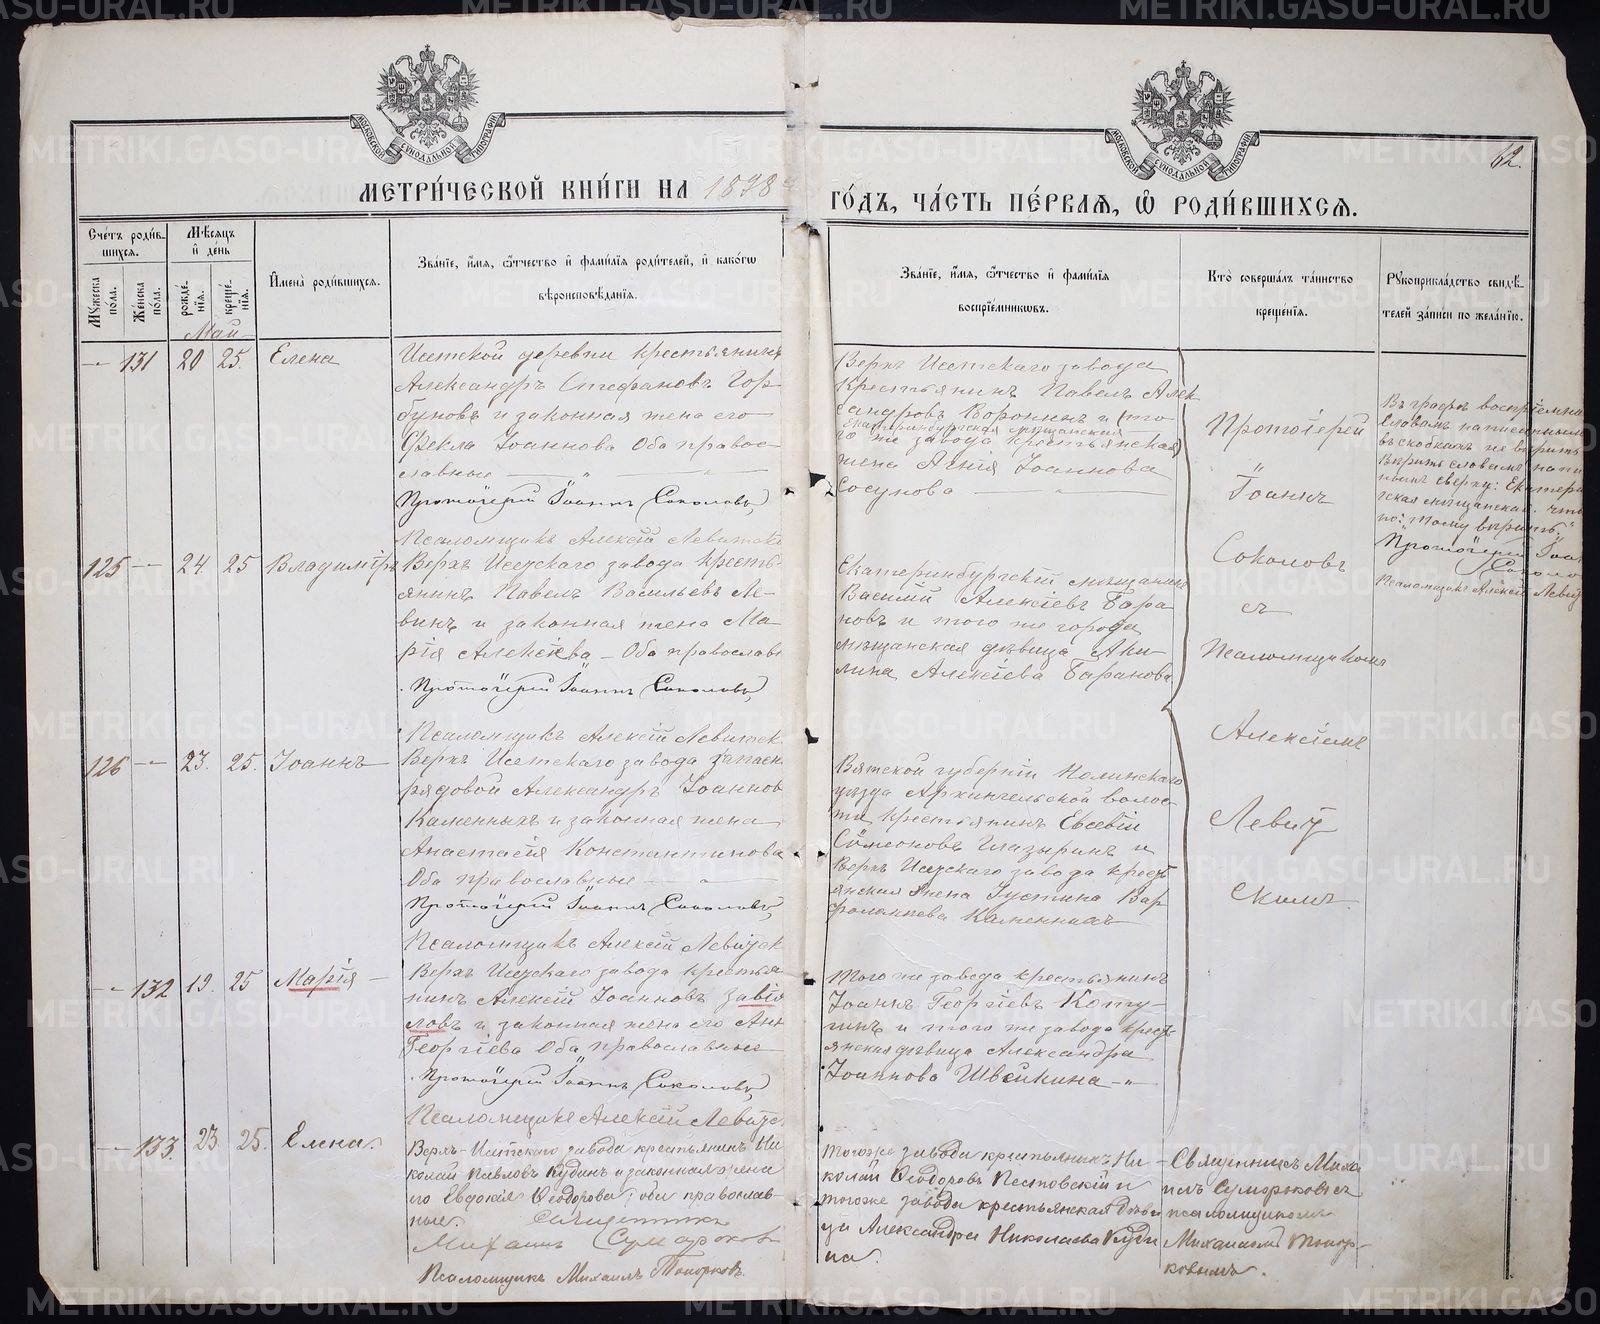 62.
МЕТРИ́ЧЕСКОЙ КНИ́ГИ НА 1898
ГО́ДЪ, ЧА́СТЬ ПЕ́РВАЯ, Ѡ РОДИ́ВШИХСЯ.
Сче́тъ роди́в-
шихся.
Му́жеска по́ла.
Же́нска по́ла.
Мѣ́сяцъ и де́нь
рожде́нїя.
креще́нїя.
Имена̀ роди́вшихся.
Зва́нїе, и́мя, ѻ҆́тчество и фами́лїя роди́телей, и како́гѡ
вѣроисповѣ́данїя.
Зва́нїе, и́мя, ѻ҆́тчество и фами́лїя
воспрїе́мникѡвъ.
Кто̀ соверша́лъ та́инство
креще́нїя.
Рукоприкла́дство свидѣ́-
телей за́писи по жела́нїю.
Май
131 20 25. Елена
Исетской деревни крестьянинъ
Александръ Стефановъ Гор-
буновъ и законная жена его
Фекла Іоаннова Оба правос-
лавные
Протоіерей Іоаннъ Соколовъ,
Псаломщикъ Алексій Левитск
Верхъ Исетскаго завода
крестьянинъ Павелъ Алек
сандровъ Воронинъ и (то
Екатеринбургская мѣщанская
го же завода крестьянская)
жена Агнія Іоаннова
Сосунова
Протоіерей
Іоаннъ
Соколовъ
съ
Псаломщикомъ
Алексіемъ
Левит
скимъ.
Въ графѣ воспріемни
словамъ написаннымъ
въ скобкахъ не вѣрить
вѣрить словамъ напи
Протоіерей Іоан
Соколо
Псаломщикъ Алексій Левит
125 24 25 Владиміръ
Верхъ Исетскаго завода кресть-
янинъ Павелъ Васильевъ Ле-
винъ и законная жена Ма-
рія Алексіева Оба православн
Протоіерей Іоаннъ Соколовъ,
Псаломщикъ Алексій Левитск
Екатеринбургскій мѣщанинъ
Василій Алексіевъ Бара
новъ и того же города
мѣщанская дѣвица Аки-
лина Алексіева Баранова
126 23. 25. Іоаннъ
Верхъ Исетскаго завода запасн
рядовой Александръ Іоаннов
Каменныхъ и законная жена
Анастасія Константинова
Оба православные
Протоіерей Іоаннъ Соколовъ,
Псаломщикъ Алексій Левитск
Вятской губерніи Нолинскаго
уѣзда Архангельской волос-
ти крестьянинъ Евсевій
Симеоновъ Глазыринъ и
Верхъ Исетскаго завода кресть
янская жена Іустина Вар
фоломеева Каменныхъ
132 19. 25 Марія
Верхъ Исетскаго завода крестья
нинъ Алексій Іоанновъ Завія
ловъ и законная жена его Анн
Георгіева Оба православные
Протоіерей Іоаннъ Соколовъ,
Псаломщикъ Алексій Левитс
Того же завода крестьянинъ
Іоаннъ Георгіевъ Коту-
гинъ и того же завода кресть
янская дѣвица Александра
Іоаннова Швейкина
133. 23 25. Елена.
Верхъ-Исетскаго завода крестьянинъ Ни
колай Павловъ Кудинъ и законная жена
его Евдокія Ѳеодорова, оба православ-
ные. Священникъ
Михаилъ Сумароков
Псаломщикъ Михаилъ Топорковъ.
Тогоже завода крестьянинъ Ни-
колай Ѳеодоровъ Пестовскій и
тогоже завода крестьянская дѣви
ца Александра Николаева Куди
на.
Священникъ Миха
илъ Сумароковъ съ
псаломщикомъ
Михаиломъ Топор-
ковымъ.